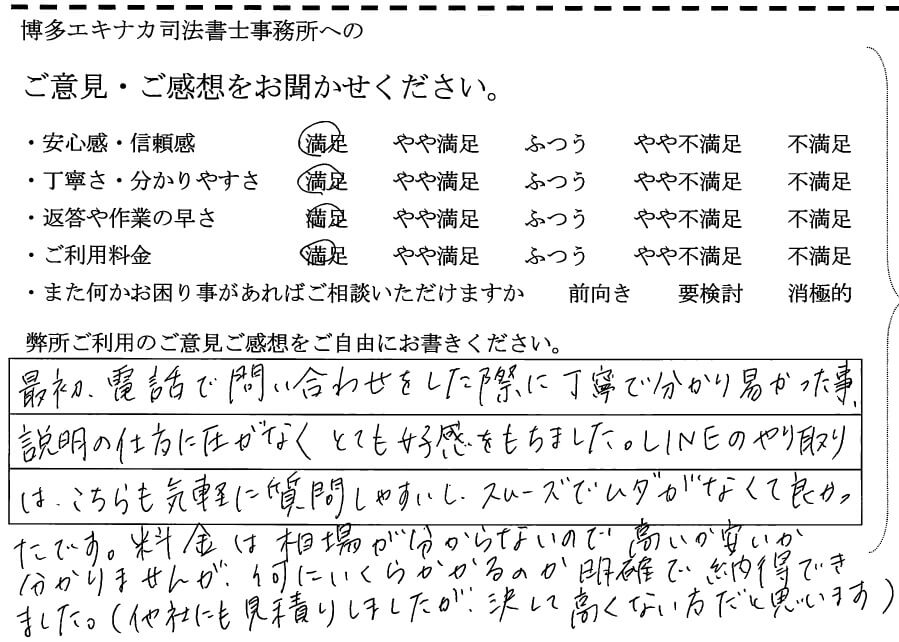 博多エキナカ司法書士事務所への
ご意見・ご感想をお聞かせください。
・安心感・信頼感 満足 やや満足 ふつう やや不満足 不満足
・丁寧さ・分かりやすさ 満足 やや満足 ふつう やや不満足 不満足
・返答や作業の早さ 満足 やや満足 ふつう やや不満足 不満足
・ご利用料金 満足 やや満足 ふつう やや不満足 不満足
・また何かお困り事があればご相談いただけますか 前向き 要検討 消極的
弊所ご利用のご意見ご感想をご自由にお書きください。
最初、電話で問い合わせをした際に丁寧で分かり易かった事、
説明の仕方に圧がなくとても好感をもちました。LINEのやり取り
は、こちらも気軽に質問しやすいし、スムーズでムダがなくて良かっ
たです。料金は相場が分からないので高いか安いか
分かりませんが、何にいくらかかるのか明確で納得でき
ました。(他社にも見積りしましたが、決して高くない方だと思います)